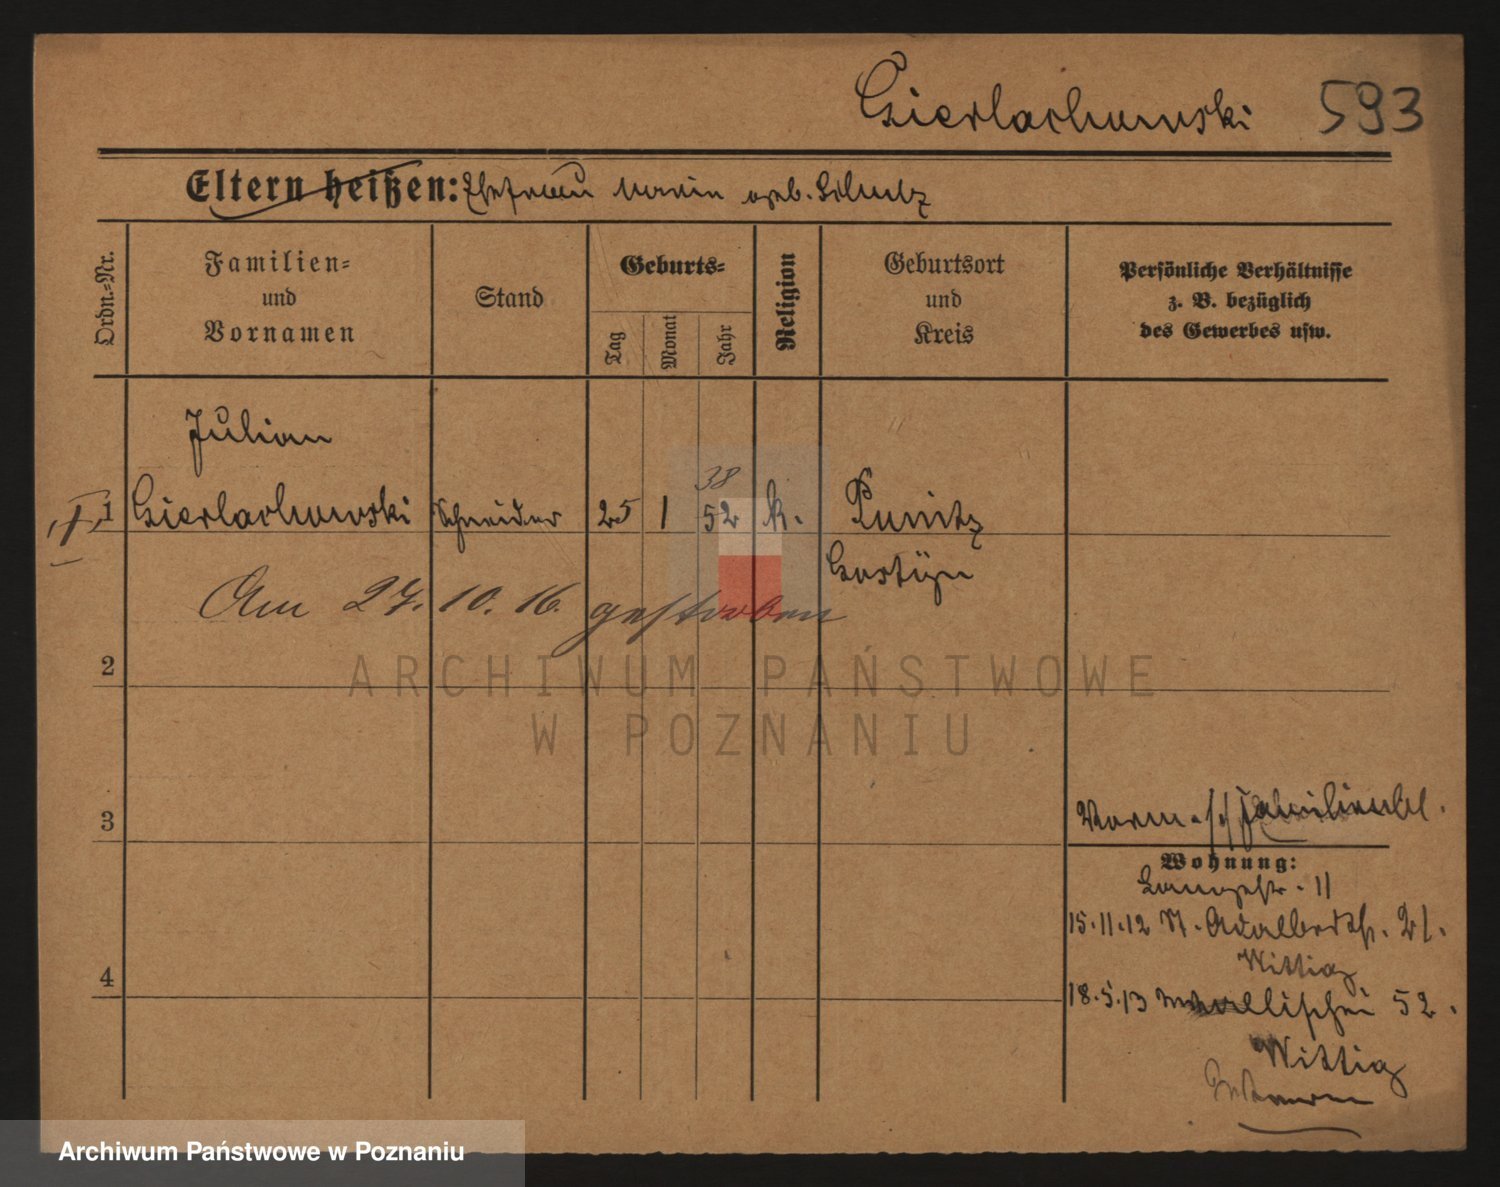 Gierlachowski 593
Eltern heißen: Ehefrau Maria geb. Schulz
Ordn.=Nr.
Familien=
und
Vornamen
Stand
Geburts=
Tag
Monat
Jahr
Religion
Geburtsort
und
Kreis
Persönliche Verhältnisse
z. B. bezüglich
des Gewerbes usw.
Julian
38
1 Gierlachowski Schneider 25 1 52 k. Punitz
Gostyn
Am 27. 10. 16. gestorben
2
3
4
Wohnung:
Langestr. 11
15.11.12 St. Adalbertstr. 21.
Wittig
18.5.13 Wallischei 52.
Wittig
ARCHIWUM PAŃSTWOWE
W POZNANIU
Archiwum Państwowe w Poznaniu